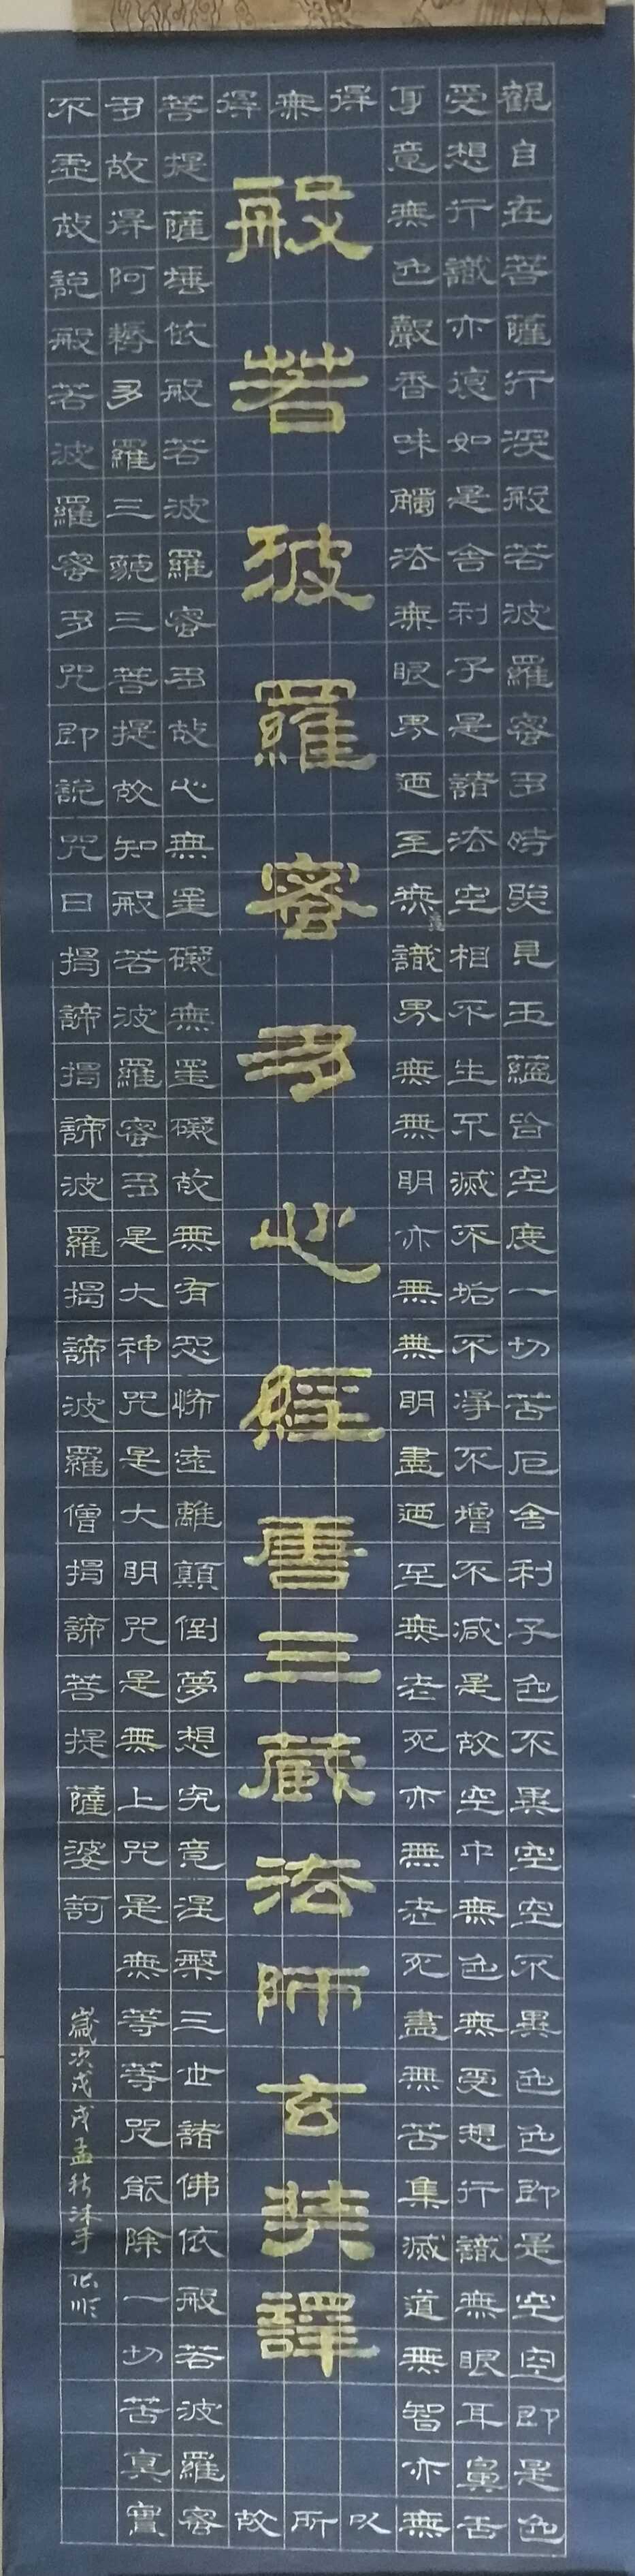 觀自在菩薩行深般若波羅蜜多時照見五蘊皆空度一切苦厄舍利子色不異空空不異色色即是空空即是色
受想行識亦復如是舍利子是諸法空相不生不滅不垢不淨不增不減是故空中無色無受想行識無眼耳鼻舌
身意無色聲香味觸法無眼界迺至無意識界無無明亦無無明盡迺至無老死亦無老死盡無苦集滅道無智亦無
得以
無所
得故
般若波羅蜜多心經唐三藏法師玄奘譯
菩提薩埵依般若波羅蜜多故心無罣礙無罣礙故無有恐怖遠離顛倒夢想究竟涅槃三世諸佛依般若波羅蜜
多故得阿耨多羅三藐三菩提故知般若波羅蜜多是大神咒是大明咒是無上咒是無等等咒能除一切苦真實
不虛故說般若波羅蜜多咒即說咒曰揭諦揭諦波羅揭諦波羅僧揭諦菩提薩婆訶
歲次戊戌孟秋沐手張順